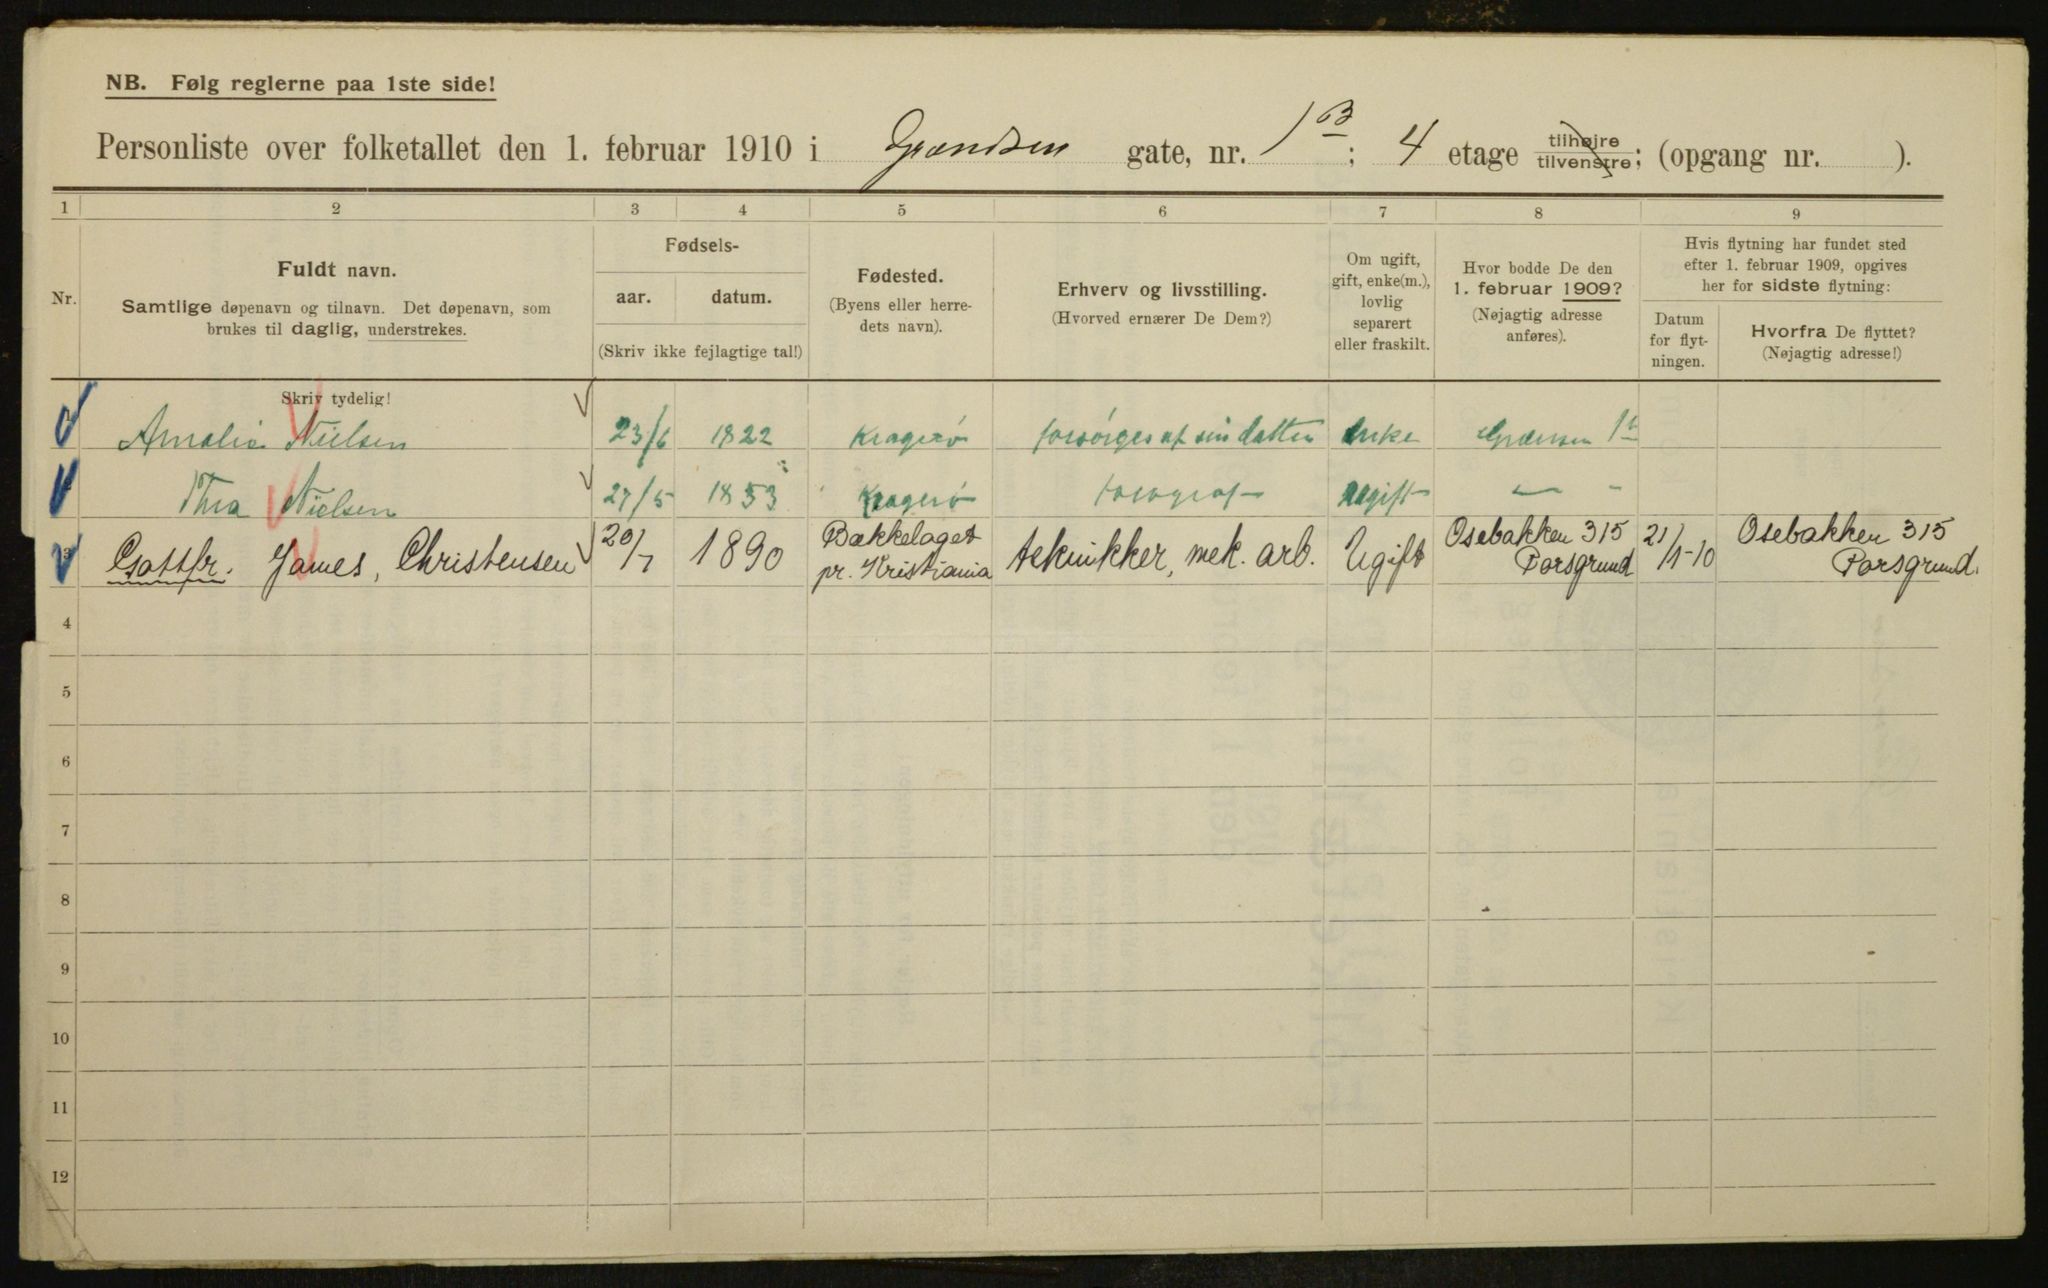 NB. Følg reglerne paa 1ste side!
Personliste over folketallet den 1. februar 1910 i Grændsen gate, nr. 1 B ; 4 etage tilhøjre tilvenstre; (opgang nr. ).
1 2 3 4 5 6 7 8 9
Nr.
Fuldt navn.
Samtlige døpenavn og tilnavn. Det døpenavn, som
brukes til daglig, understrekes.
Fødsels-
aar. datum.
(Skriv ikke fejlagtige tal!)
Fødested.
(Byens eller herre-
dets navn).
Erhverv og livsstilling.
(Hvorved ernærer De Dem?)
Om ugift,
gift, enke(m.),
lovlig
separert
eller fraskilt.
Hvor bodde De den
1. februar 1909?
(Nøjagtig adresse
anføres).
Hvis flytning har fundet sted
efter 1. februar 1909, opgives
her for sidste flytning:
Datum
for flyt-
ningen.
Hvorfra De flyttet?
(Nøjagtig adresse!)
Skriv tydelig!
Amalie Nielsen 23/6 1822 Kragerø forsörges af sin datter Enke Grænsen 1b
Thea Nielsen 27/5 1853 Kragerø fotograf Ugift — -
3 Gottfr. James, Christensen 20/7 1890 Bækkelaget pr. Kristiania teknikker, mek. arb. Ugift Osebakken 315 Porsgrund 21/1-10 Osebakken 315 Porsgrund.
4
5
6
7
8
9
10
11
12